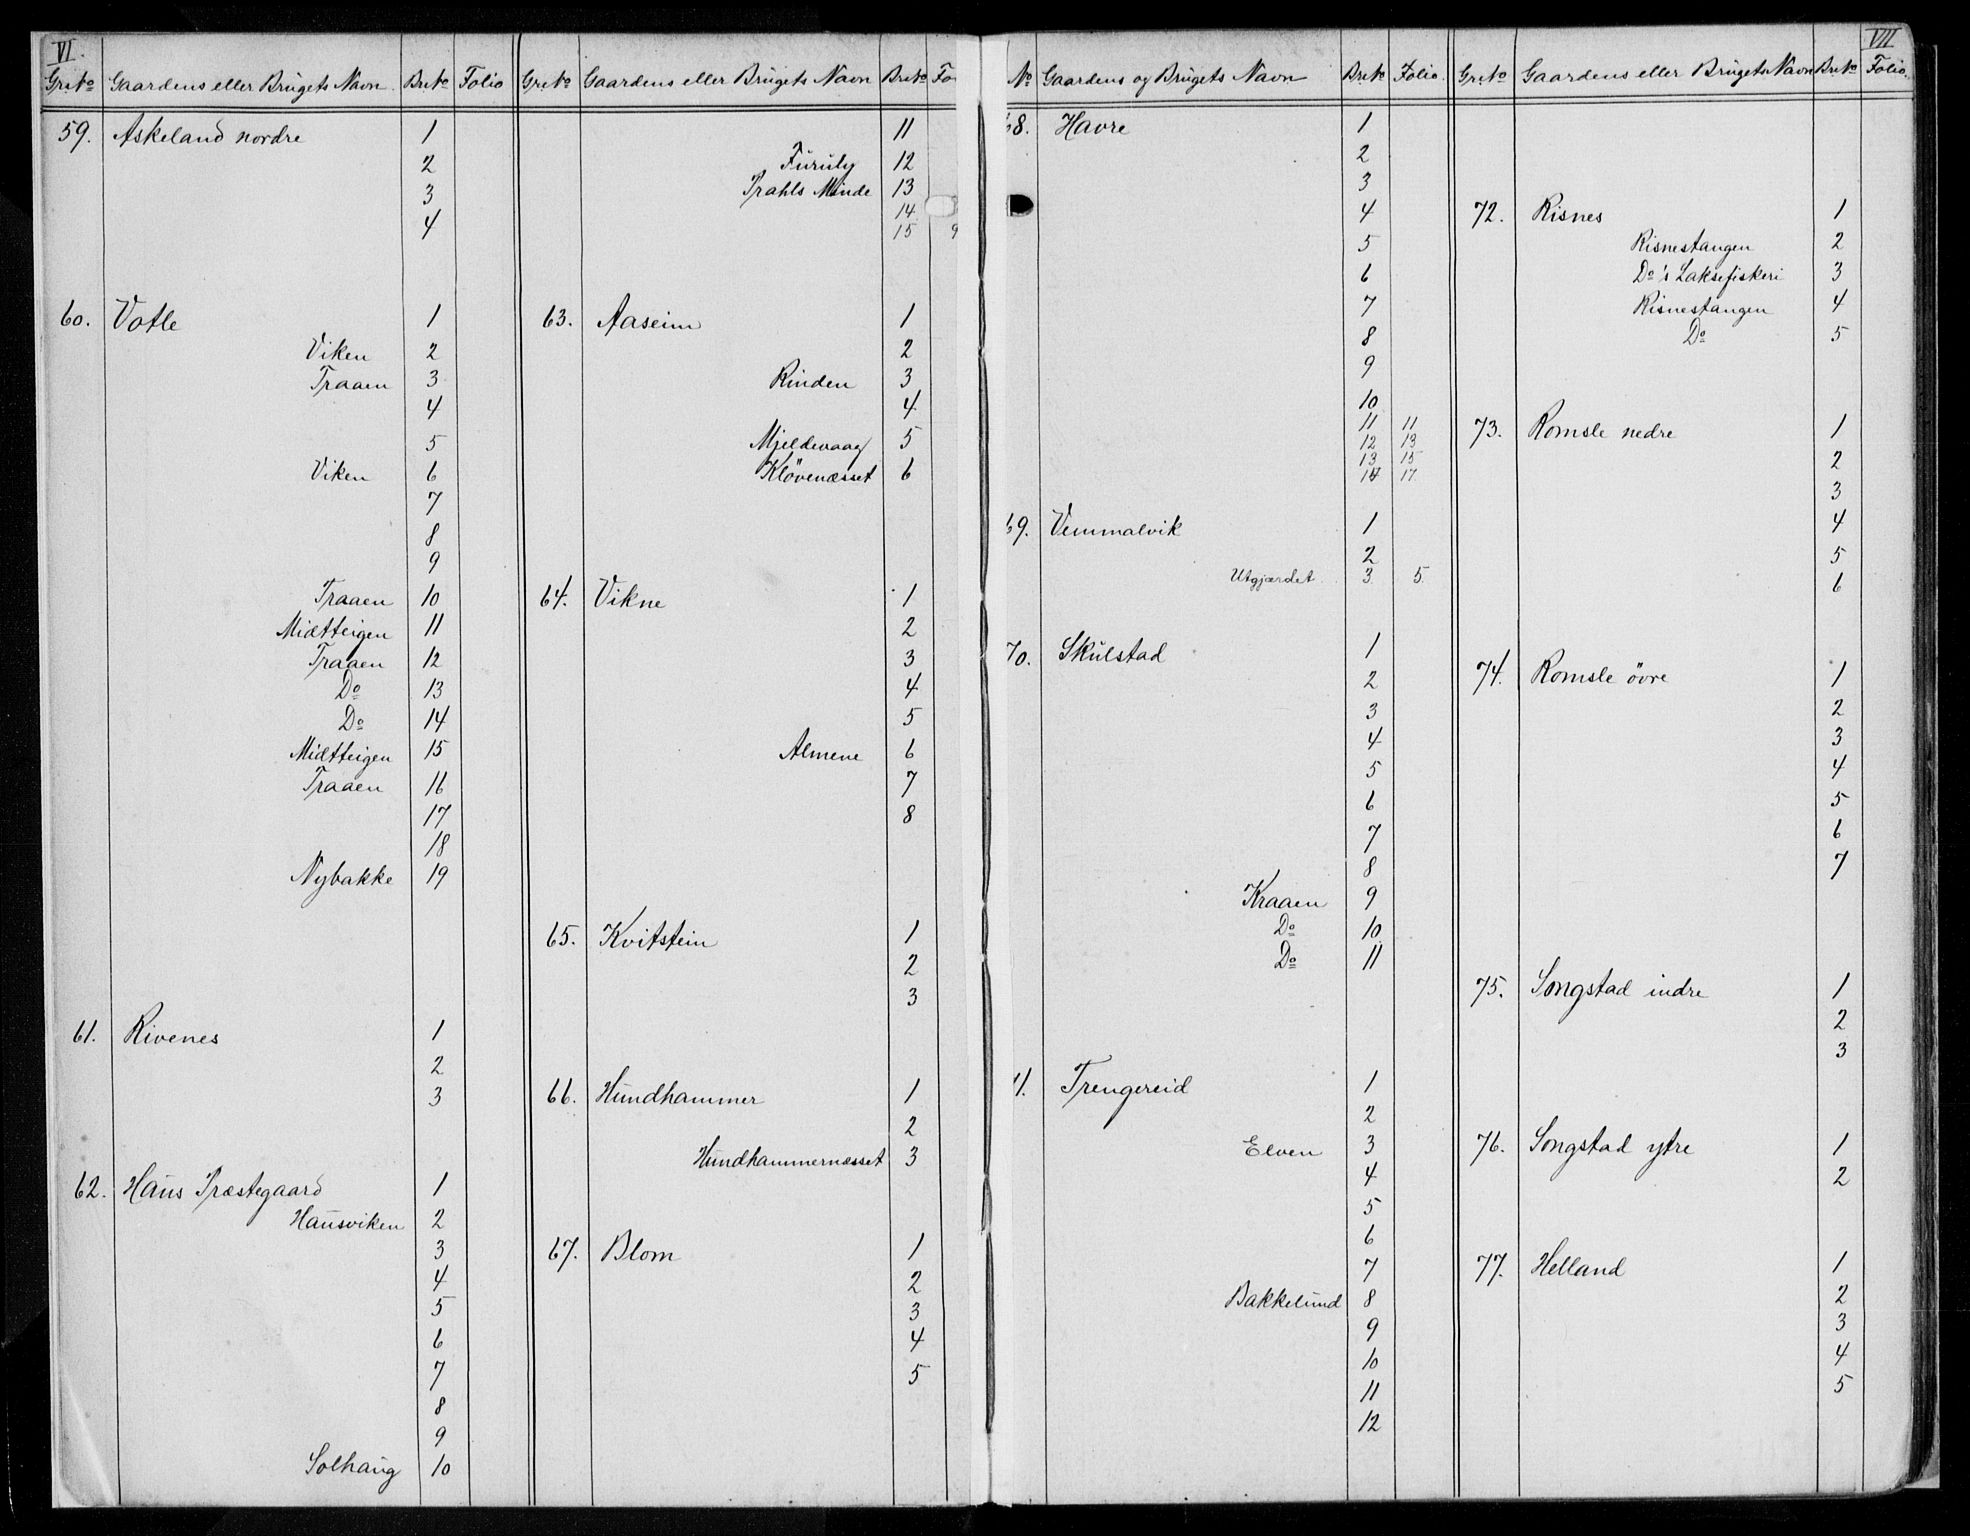 VI.
Gr.No Gaardens eller Brugets Navn. Br.No Folio
59. Askeland nordre 1
2
3
4
60. Votle 1
Viken 2
Traaen 3
4
5
Viken 6
7
8
9
Traaen 10
Midtteigen 11
Traaen 12
Do 13
Do 14
Midtteigen 15
Traaen 16
17
18
Nybakke 19
61. Rivenes 1
2
3
62. Haus Præstegaard 1
Hausviken 2
3
4
5
6
7
8
9
Solhaug 10
Gr.No Gaardens eller Brugets Navn Br.No Fo
11
Furuly 12
Prahls Minde 13
14
15 9
63. Aaseim 1
2
Rinden 3
4
Mjeldevaag 5
Kløvenæsset 6
64. Vikne 1
2
3
4
5
Almene 6
7
8
65. Kvitstein 1
2
3
66. Hundhammer 1
2
Hundhammernæsset 3
67. Blom 1
2
3
4
5
No Gaardens og Brugets Navn Br.No Folio.
68. Havre 1
2
3
4
5
6
7
8
9
10
11 11
12 13
13 15
14 17.
69. Vemmalvik 1
2
Utgjærdet 3 5.
70. Skulstad 1
2
3
4
5
6
7
8
Kraaen 9
Do 10
Do 11
1. Trengereid 1
2
Elven 3
4
5
6
7
Bakkelund 8
9
10
11
12
VII
Gr.No Gaardens eller Brugets Navn Br.No Folio.
72. Risnes 1
Risnestangen 2
Do's Laksefiskeri 3
Risnestangen 4
Do 5
73. Romsle nedre 1
2
3
4
5
6
74. Romsle övre 1
2
3
4
5
6
7
75. Songstad indre 1
2
3
76. Songstad ytre 1
2
77. Helland 1
2
3
4
5